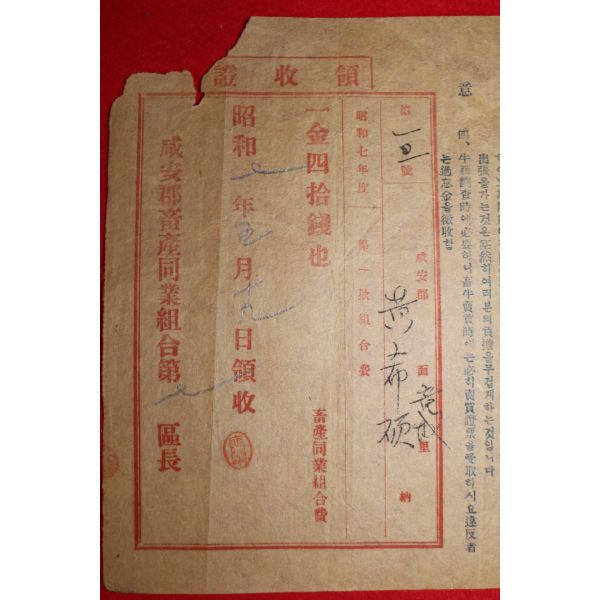 意
四、牛籍調査時에必要하니畜牛賣買時에는必히賣買證票를受取하시요違反者
는過怠金을徵收함
出張을가는것은突然히여러분의負擔을무겁게하는것입니다
領收證
第 號
咸安郡 面 里
黃 碩 納
昭和七年度 第一款組合費
畜產同業組合費
一金四拾錢也
昭和 七 年 五 月 十九 日領收
咸安郡畜產同業組合第 區長